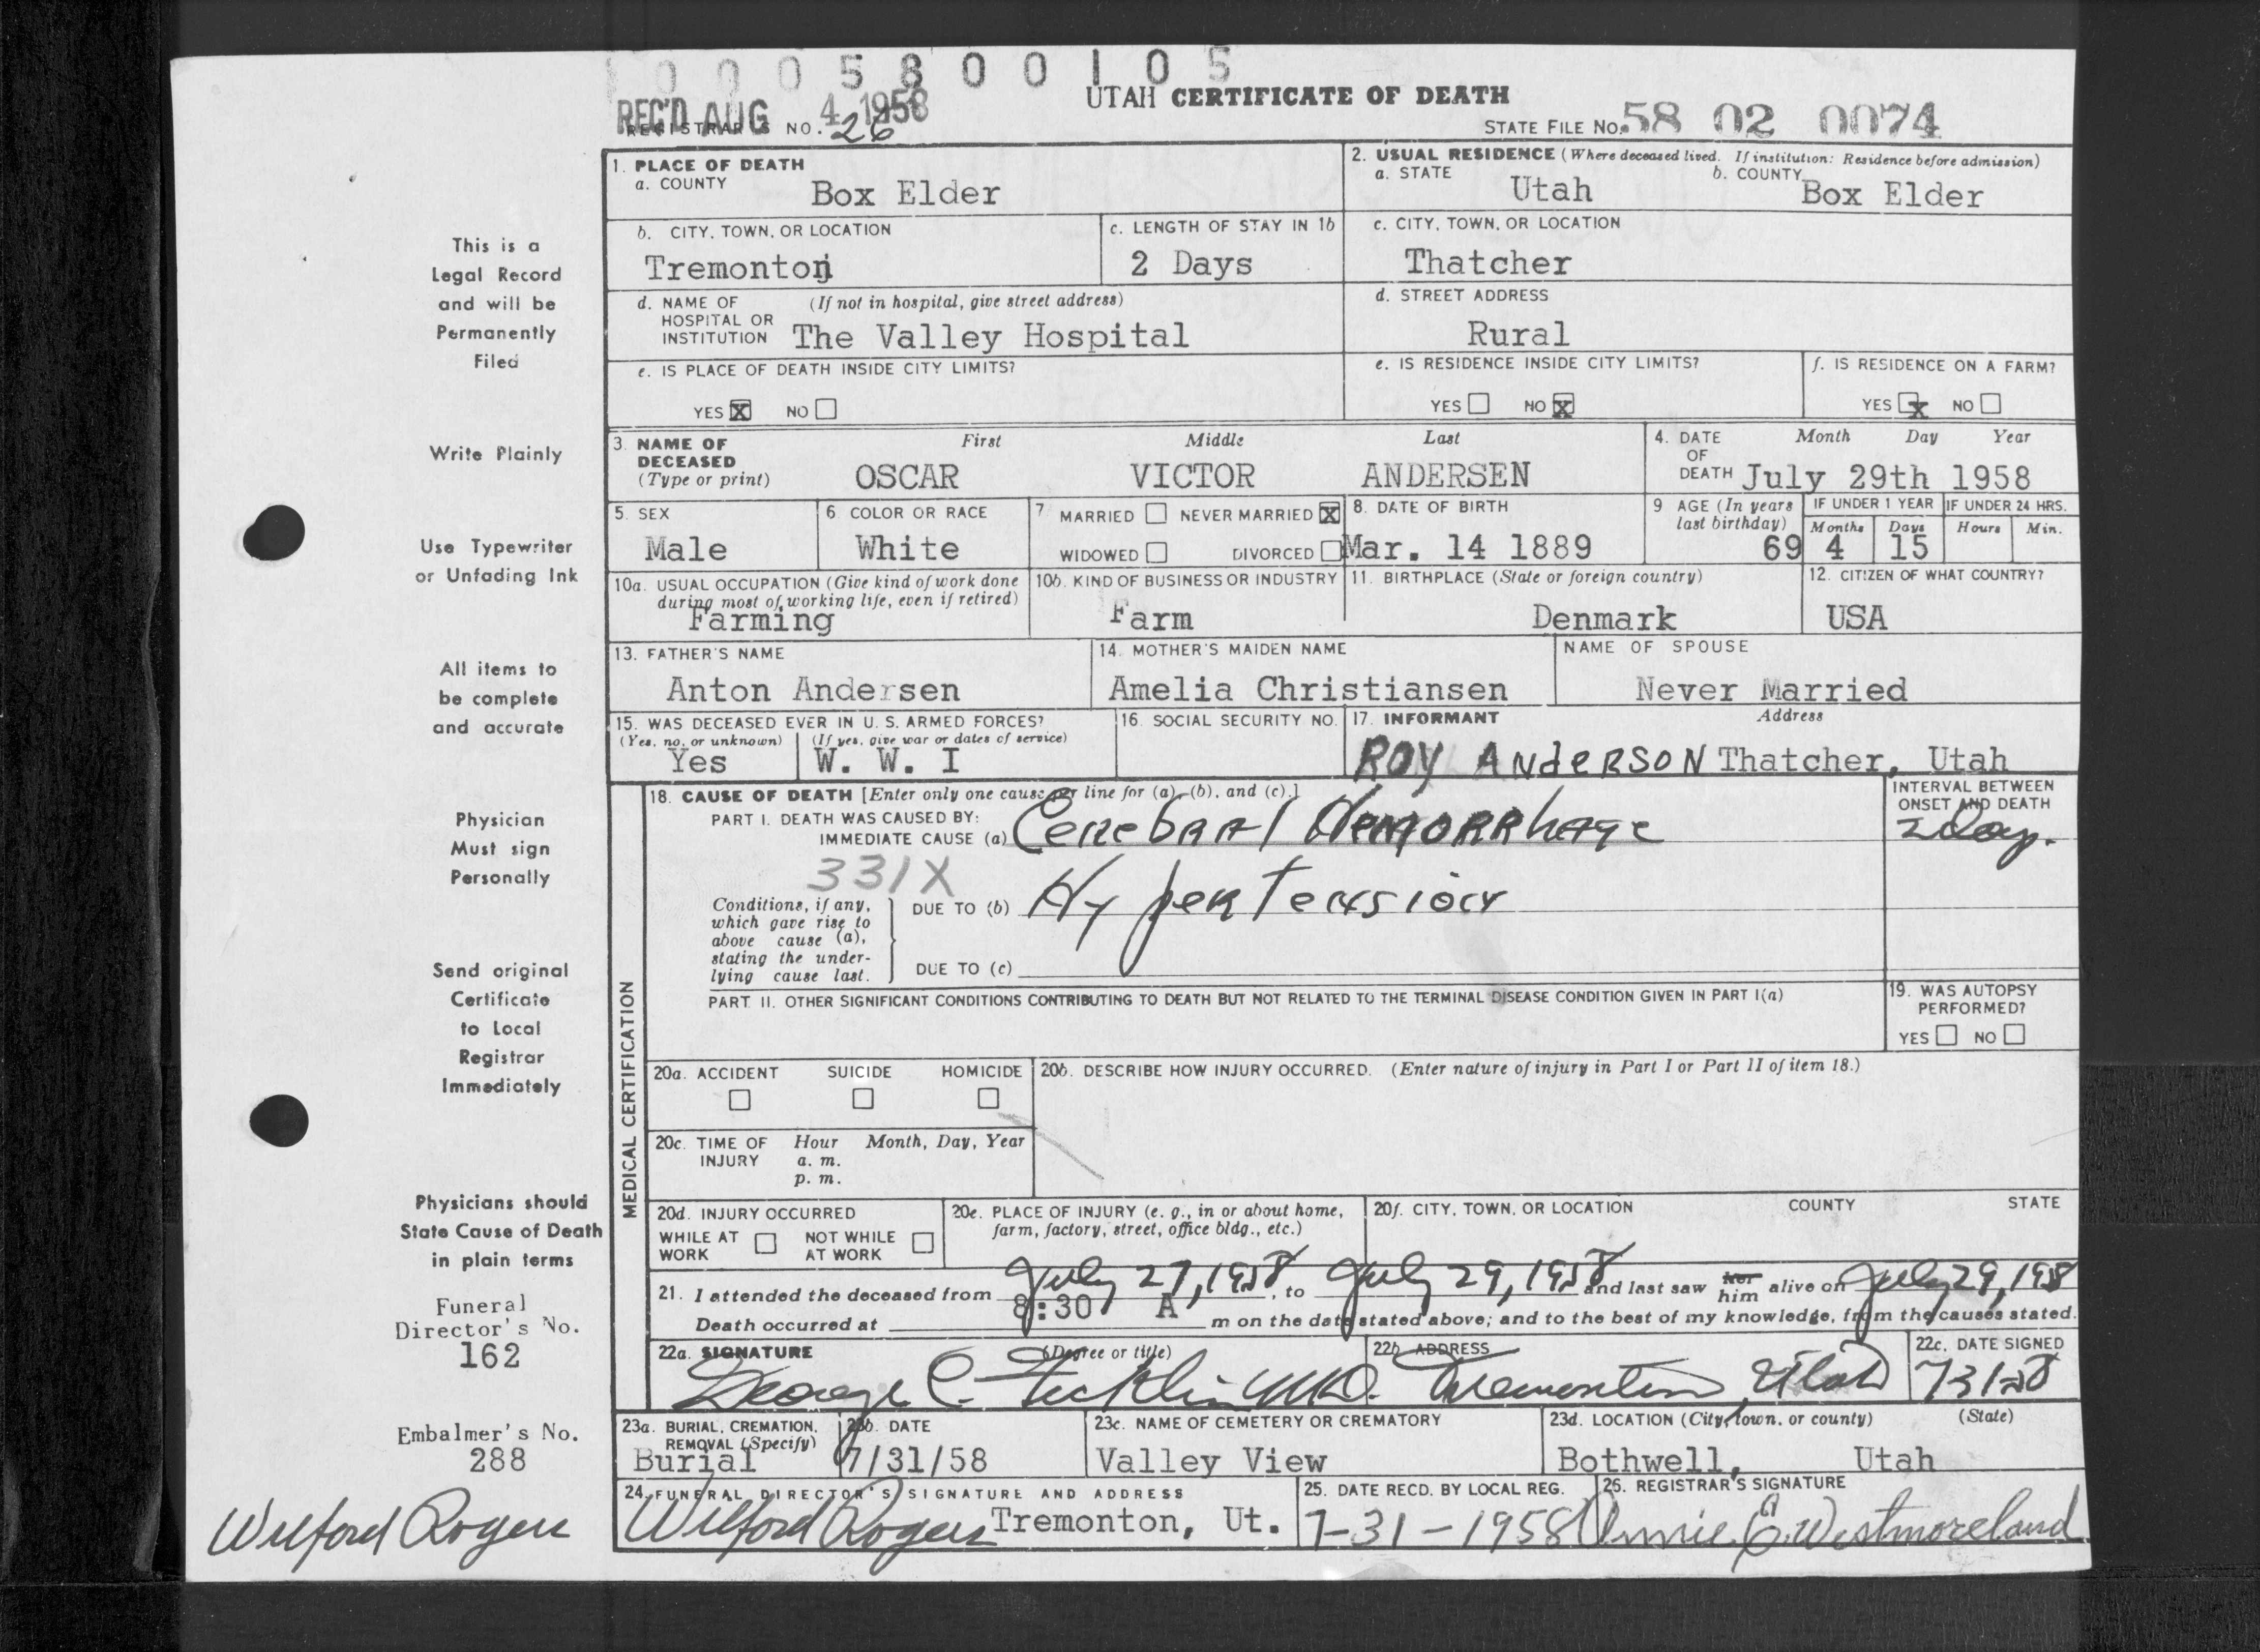 0 0 0 5 8 0 0 1 0 5
REC'D AUG 4 1958
UTAH CERTIFICATE OF DEATH
REGISTRAR'S NO. 26
STATE FILE NO. 58 02 0074
1. PLACE OF DEATH
a. COUNTY
Box Elder
2. USUAL RESIDENCE (Where deceased lived. If institution: Residence before admission)
a. STATE
Utah
b. COUNTY
Box Elder
b. CITY, TOWN, OR LOCATION
Tremonton
c. LENGTH OF STAY IN 1b
2 Days
c. CITY, TOWN, OR LOCATION
Thatcher
d. NAME OF HOSPITAL OR INSTITUTION
(If not in hospital, give street address)
The Valley Hospital
d. STREET ADDRESS
Rural
e. IS PLACE OF DEATH INSIDE CITY LIMITS?
YES X NO
e. IS RESIDENCE INSIDE CITY LIMITS?
YES NO X
f. IS RESIDENCE ON A FARM?
YES X NO
3. NAME OF DECEASED (Type or print)
First Middle Last
OSCAR VICTOR ANDERSEN
4. DATE OF DEATH
Month Day Year
July 29th 1958
5. SEX
Male
6. COLOR OR RACE
White
7. MARRIED NEVER MARRIED X
WIDOWED DIVORCED
8. DATE OF BIRTH
Mar. 14 1889
9. AGE (In years last birthday)
69
IF UNDER 1 YEAR
Months Days
4 15
IF UNDER 24 HRS.
Hours Min.
10a. USUAL OCCUPATION (Give kind of work done during most of working life, even if retired)
Farming
10b. KIND OF BUSINESS OR INDUSTRY
Farm
11. BIRTHPLACE (State or foreign country)
Denmark
12. CITIZEN OF WHAT COUNTRY?
USA
13. FATHER'S NAME
Anton Andersen
14. MOTHER'S MAIDEN NAME
Amelia Christiansen
NAME OF SPOUSE
Never Married
15. WAS DECEASED EVER IN U. S. ARMED FORCES?
(Yes, no, or unknown) (If yes, give war or dates of service)
Yes W. W. I
16. SOCIAL SECURITY NO.
17. INFORMANT Address
ROY ANdeRSON Thatcher, Utah
MEDICAL CERTIFICATION
18. CAUSE OF DEATH [Enter only one cause per line for (a), (b), and (c).]
PART I. DEATH WAS CAUSED BY:
IMMEDIATE CAUSE (a) Cerebral Hemorrhage
INTERVAL BETWEEN ONSET AND DEATH
2 day.
331X
Conditions, if any, which gave rise to above cause (a), stating the underlying cause last.
DUE TO (b) Hypertension
DUE TO (c)
PART II. OTHER SIGNIFICANT CONDITIONS CONTRIBUTING TO DEATH BUT NOT RELATED TO THE TERMINAL DISEASE CONDITION GIVEN IN PART I(a)
19. WAS AUTOPSY PERFORMED?
YES NO
20a. ACCIDENT SUICIDE HOMICIDE
20b. DESCRIBE HOW INJURY OCCURRED. (Enter nature of injury in Part I or Part II of item 18.)
20c. TIME OF INJURY
Hour Month, Day, Year
a. m.
p. m.
20d. INJURY OCCURRED
WHILE AT WORK NOT WHILE AT WORK
20e. PLACE OF INJURY (e. g., in or about home, farm, factory, street, office bldg., etc.)
20f. CITY, TOWN, OR LOCATION COUNTY STATE
21. I attended the deceased from July 27, 1958, to July 29, 1958 and last saw her him alive on July 29, 1958
Death occurred at 8:30 A m on the date stated above; and to the best of my knowledge, from the causes stated.
22a. SIGNATURE (Degree or title)
George C. M.D.
22b. ADDRESS
Tremonton, Utah
22c. DATE SIGNED
73158
23a. BURIAL, CREMATION, REMOVAL (Specify)
Burial
23b. DATE
7/31/58
23c. NAME OF CEMETERY OR CREMATORY
Valley View
23d. LOCATION (City, town, or county) (State)
Bothwell, Utah
24. FUNERAL DIRECTOR'S SIGNATURE AND ADDRESS
Wilford Rogers Tremonton, Ut.
25. DATE RECD. BY LOCAL REG.
7-31-1958
26. REGISTRAR'S SIGNATURE
E. Westmoreland
This is a
Legal Record
and will be
Permanently
Filed
Write Plainly
Use Typewriter
or Unfading Ink
All items to
be complete
and accurate
Physician
Must sign
Personally
Send original
Certificate
to Local
Registrar
Immediately
Physicians should
State Cause of Death
in plain terms
Funeral
Director's No.
162
Embalmer's No.
288
Wilford Rogers